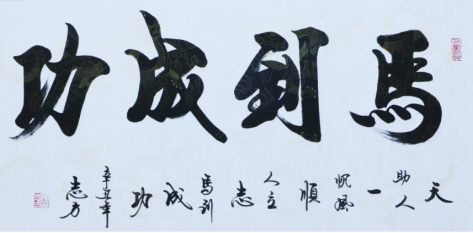 馬到成功
天助人一帆風順人立志馬到成功
辛丑年
志方